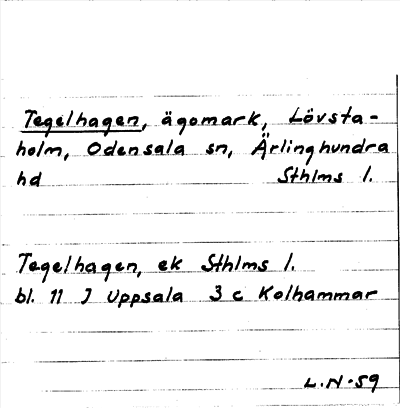 Tegelhagen, ägomark, Lövsta-
holm, Odensala sn, Ärlinghundra
hd Sthlms l.
Tegelhagen, ek Sthlms l.
bl. 11 J Uppsala 3 c Kolhammar
L.N-59